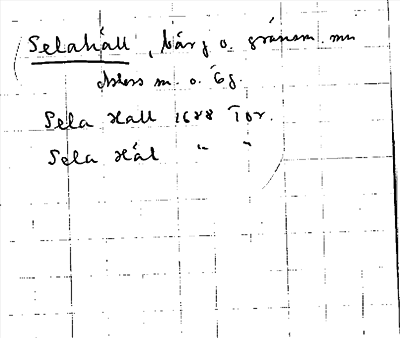 (Selahäll, bärg o. gränsm. mn
m. o. Eg.
Sela Hall 1688 Tor.
Sela Häl " ")